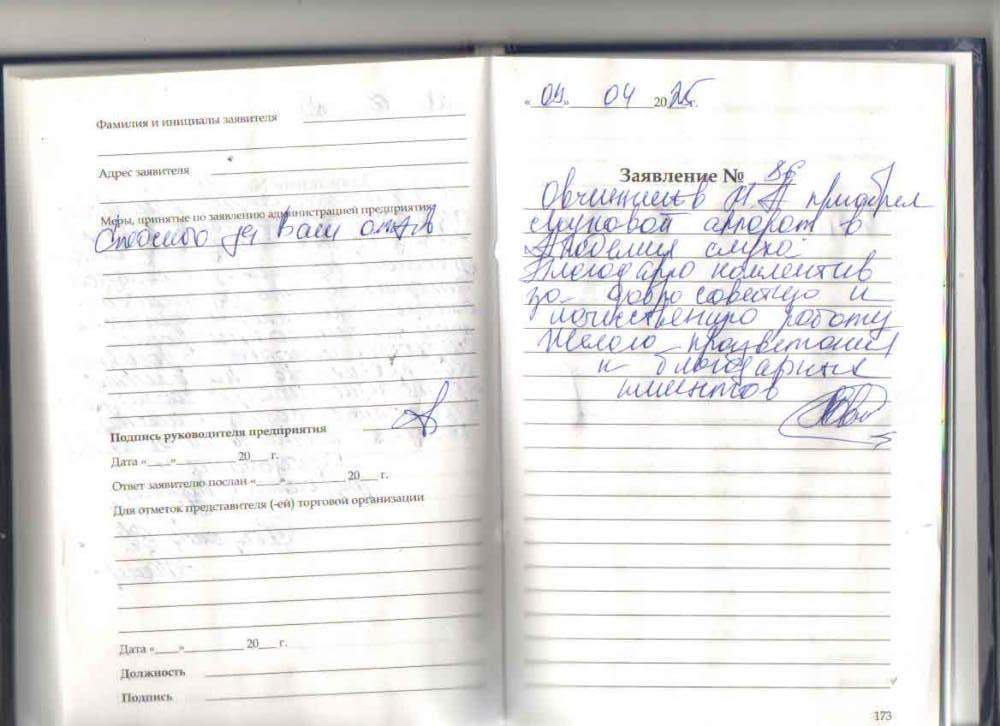 Фамилия и инициалы заявителя
Адрес заявителя
Меры, принятые по заявлению администрацией предприятия
Спасибо за Ваш отзыв
Подпись руководителя предприятия
Дата «___»__________ 20___ г.
Ответ заявителю послан «____»__________ 20___ г.
Для отметок представителя (-ей) торговой организации
Дата «____»__________ 20___ г.
Должность
Подпись
« » 04 2025г.
Заявление № 86
Овчинников приобрел
слуховой аппарат в
Академия слуха.
Благодарю коллектив
за добросовестную и
качественную работу
Желаю процветания
и благодарных
клиентов
173